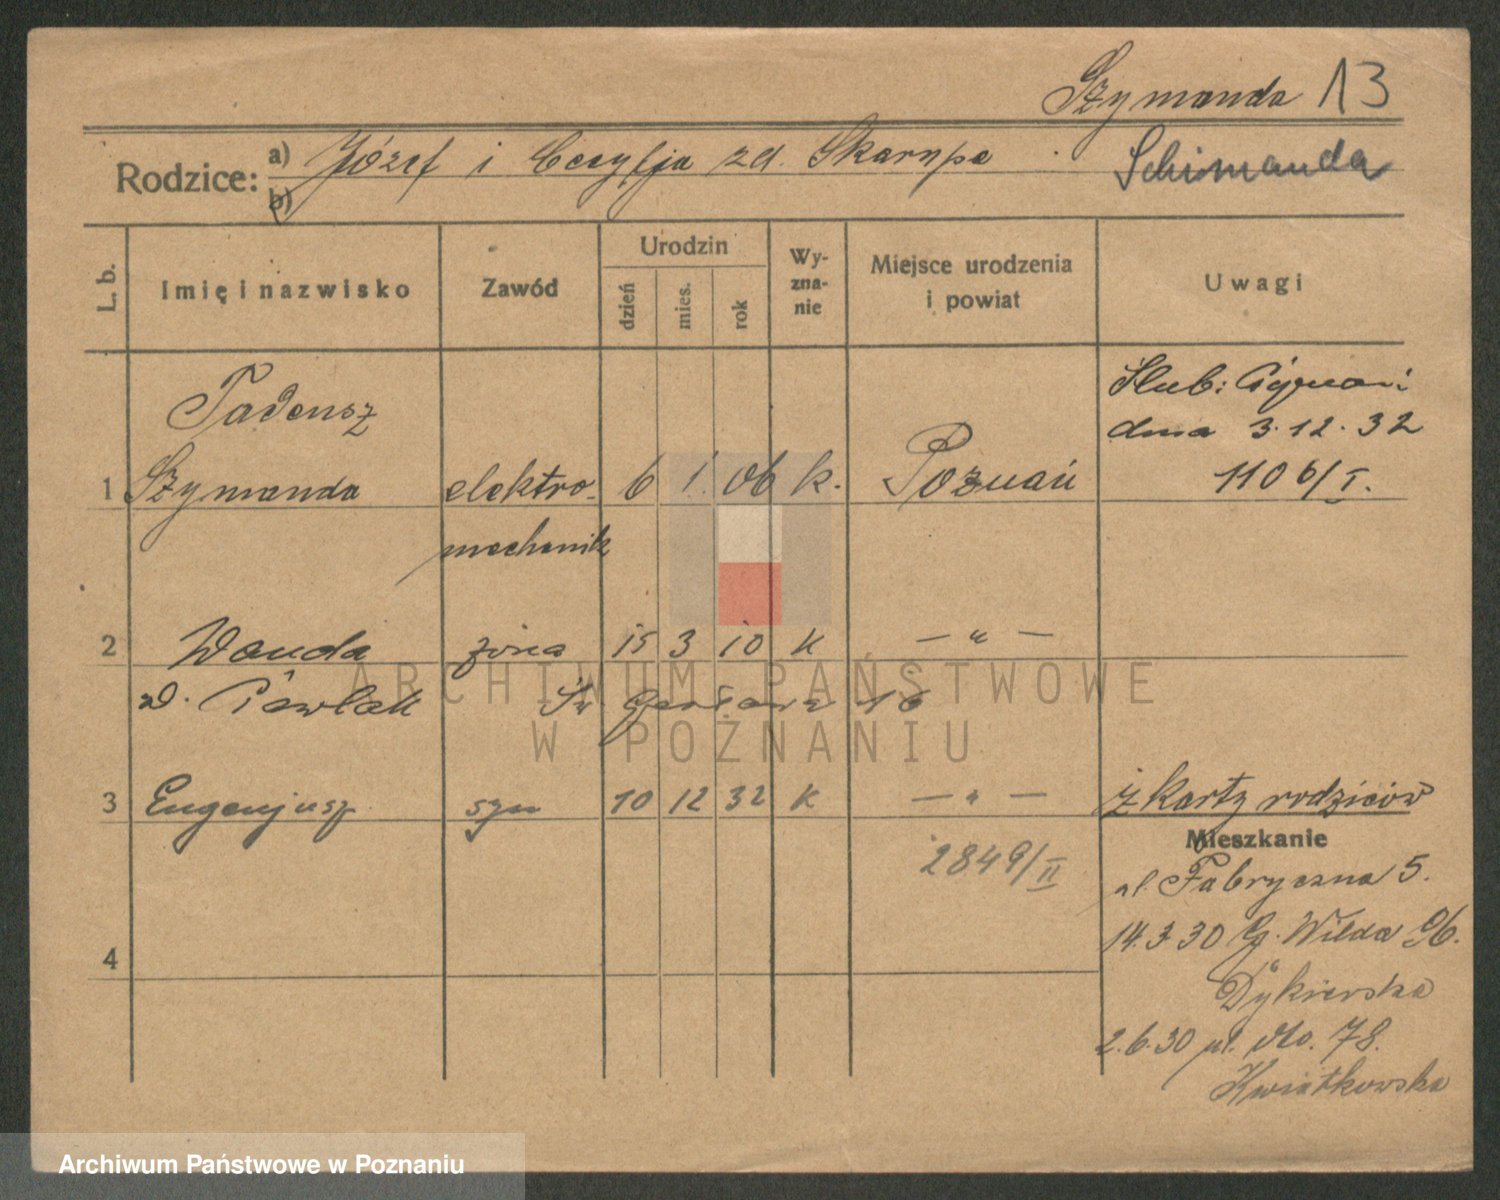 Szymanda 13
Rodzice: a) Józef i Cecylja zd. Skarupa
Schimanda
b)
L. b. Imię i nazwisko Zawód Urodzin dzień mies. rok Wy-zna-nie Miejsce urodzenia i powiat Uwagi
Ślub: Poznań
dnia 3.12.32
1106/I.
Tadeusz
1 Szymanda elektro- 6 1. 06 k. Poznań
mechanik
2 Wanda żona 15 3 10 k — " —
zd. Pawlak Św.
16
3 Eugenjusz syn 10 12 32 k — " —
2849/II
4
z karty rodziców
Mieszkanie
ul. Fabryczna 5.
14.3.30 G. Wilda 96.
Dykierska
2.6.30 ul. dto. 78.
Kwiatkowska
ARCHIWUM PAŃSTWOWE
W POZNANIU
Archiwum Państwowe w Poznaniu